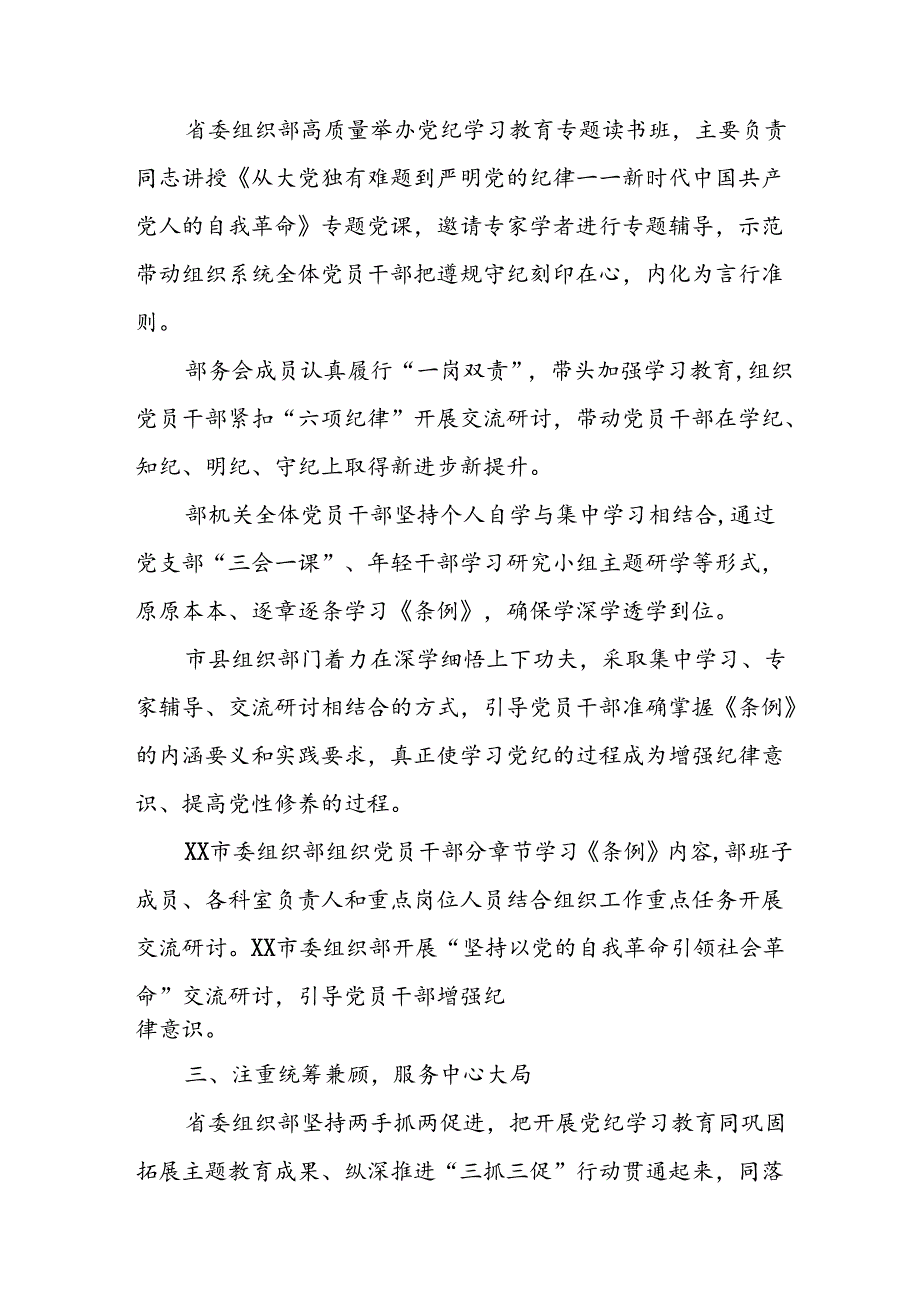 省委组织部高质量举办党纪学习教育专题读书班，主要负责
同志讲授《从大党独有难题到严明党的纪律一一新时代中国共产
党人的自我革命》专题党课，邀请专家学者进行专题辅导，示范
带动组织系统全体党员干部把遵规守纪刻印在心，内化为言行准
则。
部务会成员认真履行“一岗双责”，带头加强学习教育,组织
党员干部紧扣“六项纪律”开展交流研讨，带动党员干部在学纪、
知纪、明纪、守纪上取得新进步新提升。
部机关全体党员干部坚持个人自学与集中学习相结合,通过
党支部“三会一课”、年轻干部学习研究小组主题研学等形式，
原原本本、逐章逐条学习《条例》，确保学深学透学到位。
市县组织部门着力在深学细悟上下功夫，采取集中学习、专
家辅导、交流研讨相结合的方式，引导党员干部准确掌握《条例》
的内涵要义和实践要求，真正使学习党纪的过程成为增强纪律意
识、提高党性修养的过程。
XX市委组织部组织党员干部分章节学习《条例》内容,部班子
成员、各科室负责人和重点岗位人员结合组织工作重点任务开展
交流研讨。XX市委组织部开展“坚持以党的自我革命引领社会革
命”交流研讨，引导党员干部增强纪
律意识。
三、注重统筹兼顾，服务中心大局
省委组织部坚持两手抓两促进，把开展党纪学习教育同巩固
拓展主题教育成果、纵深推进“三抓三促”行动贯通起来，同落